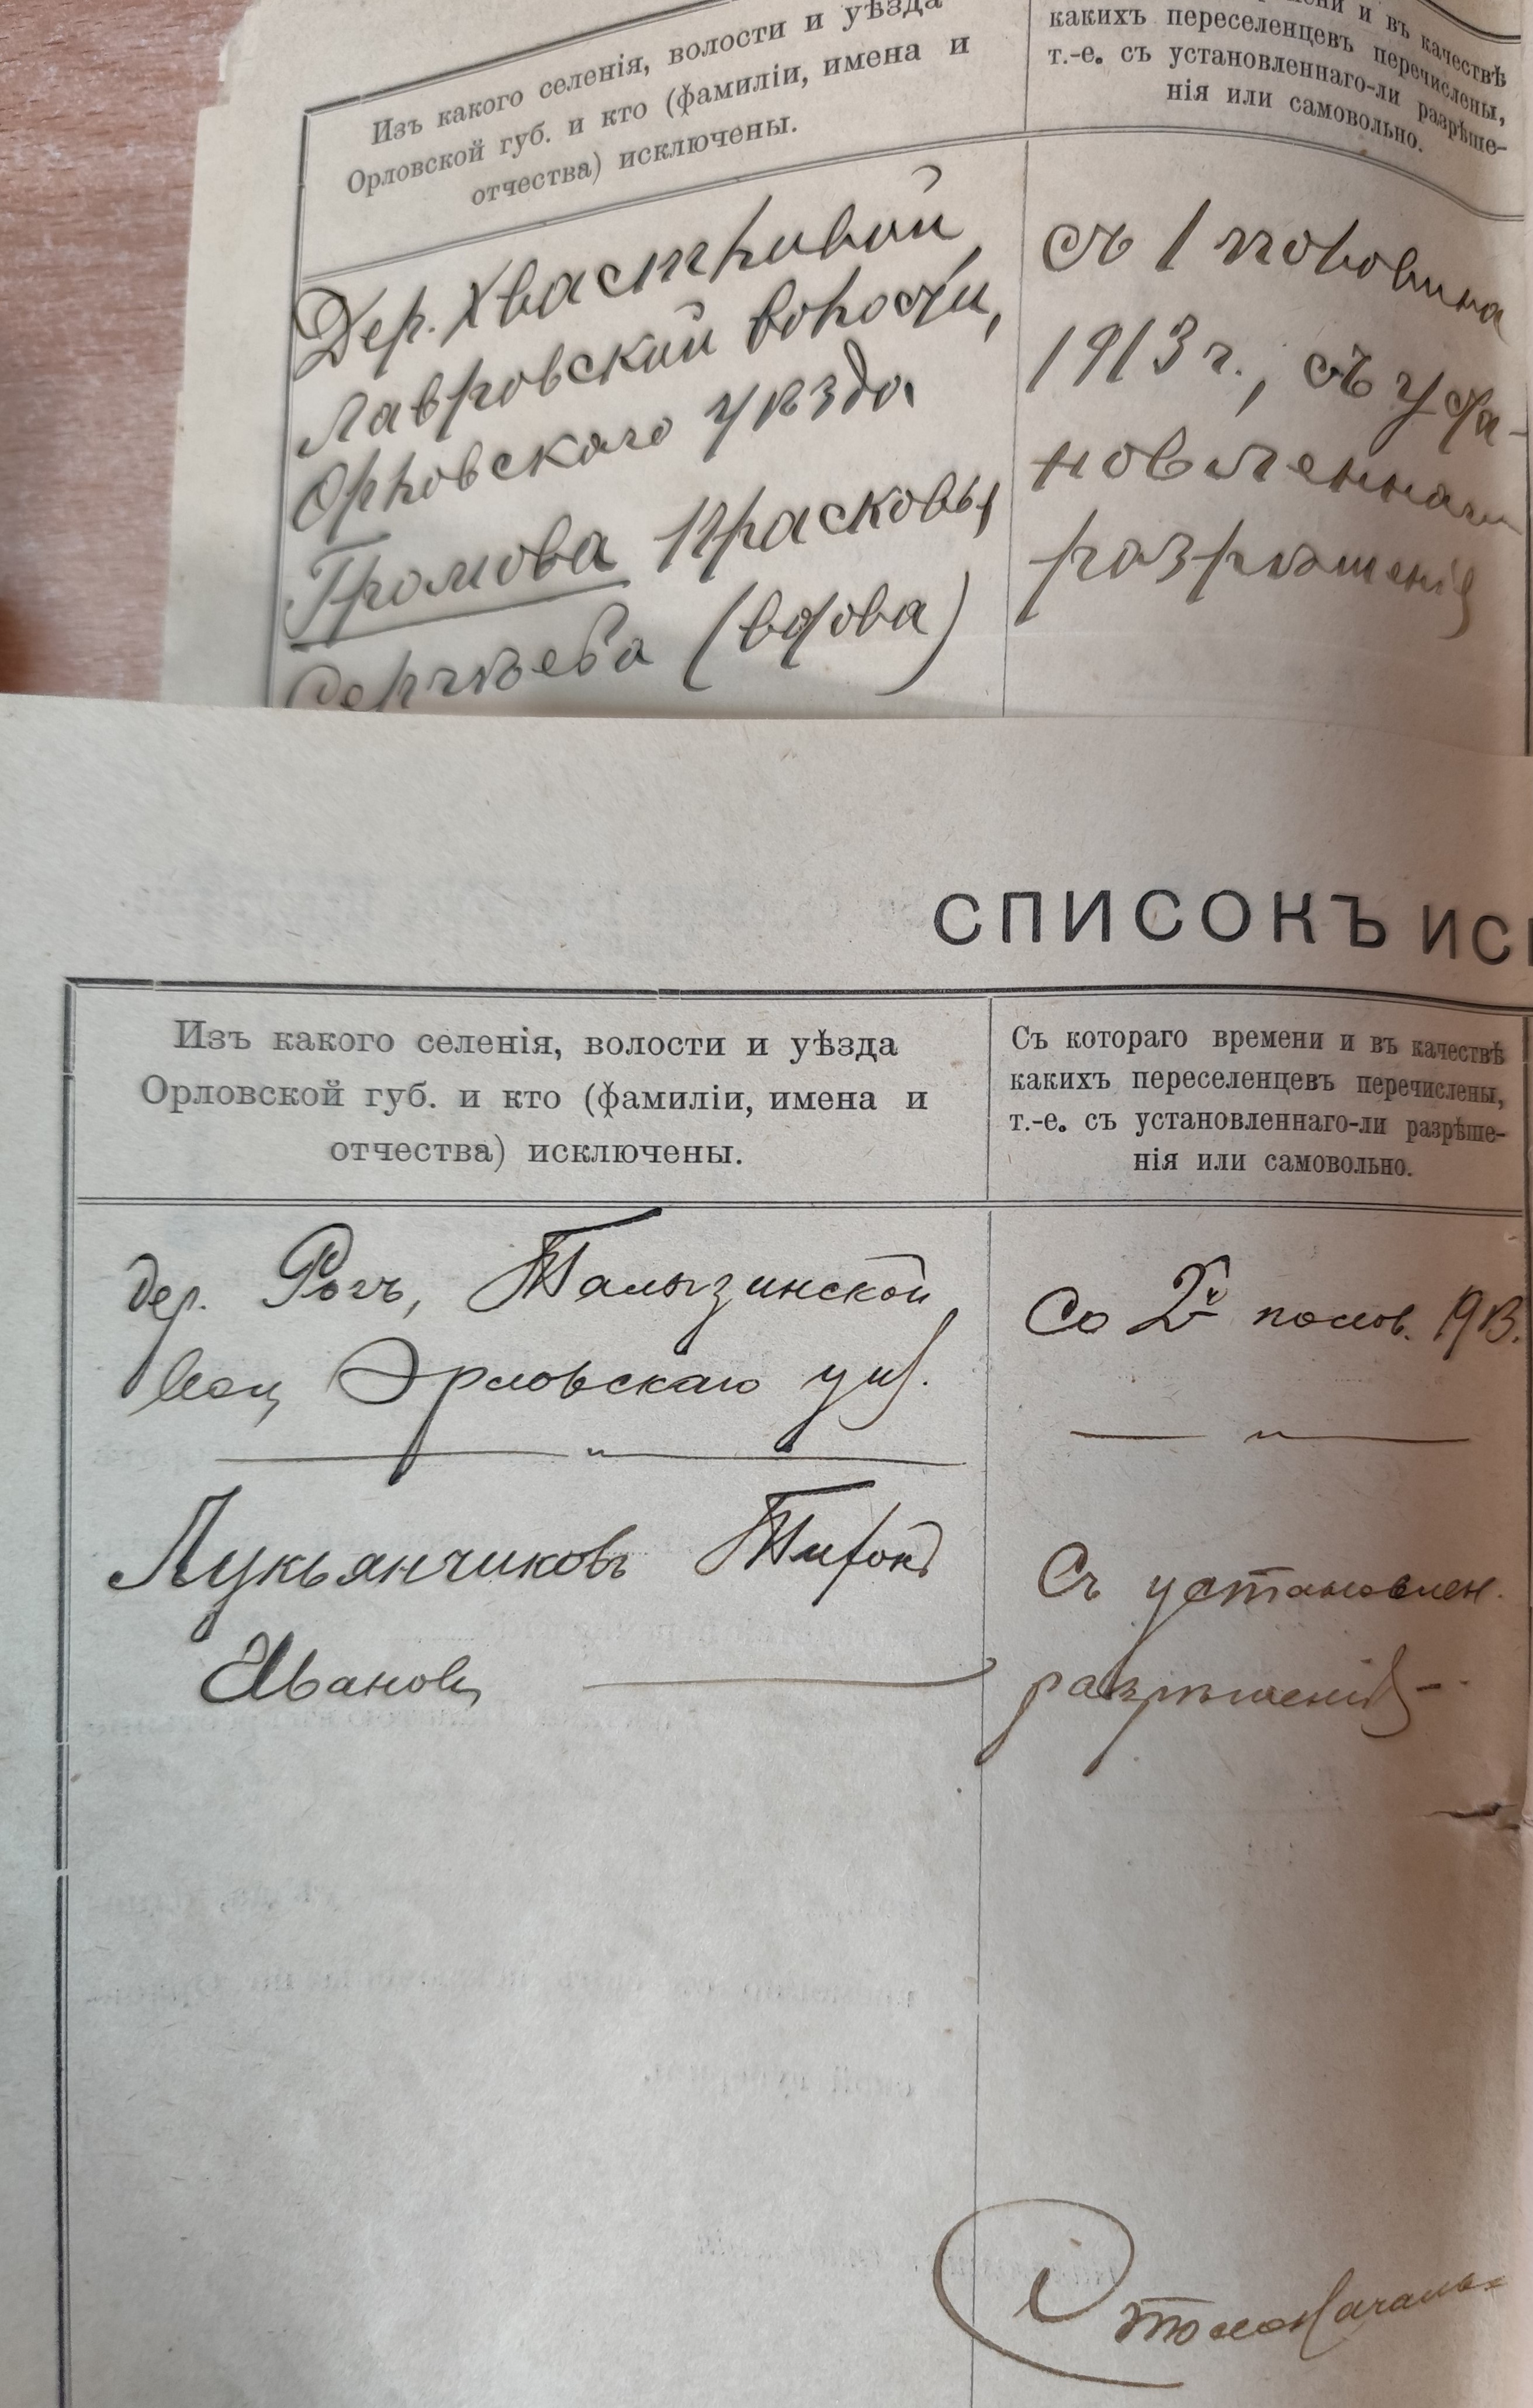 Изъ какого селенія, волости и уѣзда
Орловской губ. и кто (фамиліи, имена и
отчества) исключены.
и въ качествѣ
какихъ переселенцевъ перечислены,
т.-е. съ установленнаго-ли разрѣше-
нія или самовольно.
Дер. Хвастливой,
Лавровской волости,
Орловскаго уѣзда
Громова Прасковья
Сергѣева (вдова)
съ 1 половина
1913 г., съ уста-
новленнаго
разрѣшенія
СПИСОКЪ
Изъ какого селенія, волости и уѣзда
Орловской губ. и кто (фамиліи, имена и
отчества) исключены.
Съ котораго времени и въ качествѣ
какихъ переселенцевъ перечислены,
т.-е. съ установленнаго-ли разрѣше-
нія или самовольно.
дер. Рогъ, Талызинской
вол Орловскаго
Лукьянчиковъ Тихонъ
Ивановъ
Со 2й полов. 1913.
Съ установлен.
разрѣшенія